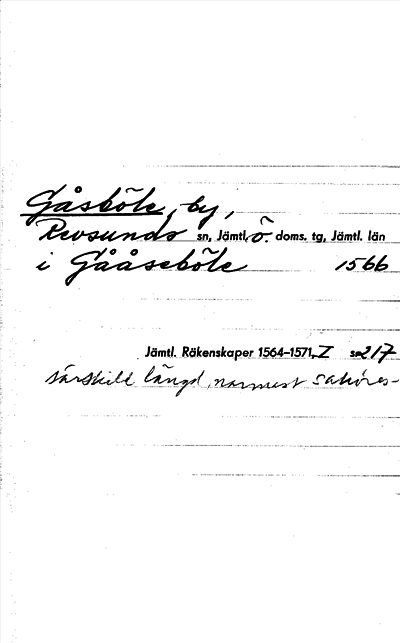 Gåsböle, by,
Revsunds sn, Jämtl. Ö. doms. tg, Jämtl. län
i Gååseböle 1566
Jämtl. Räkenskaper 1564–1571, I s. 217
särskild längd, närmast saköres-